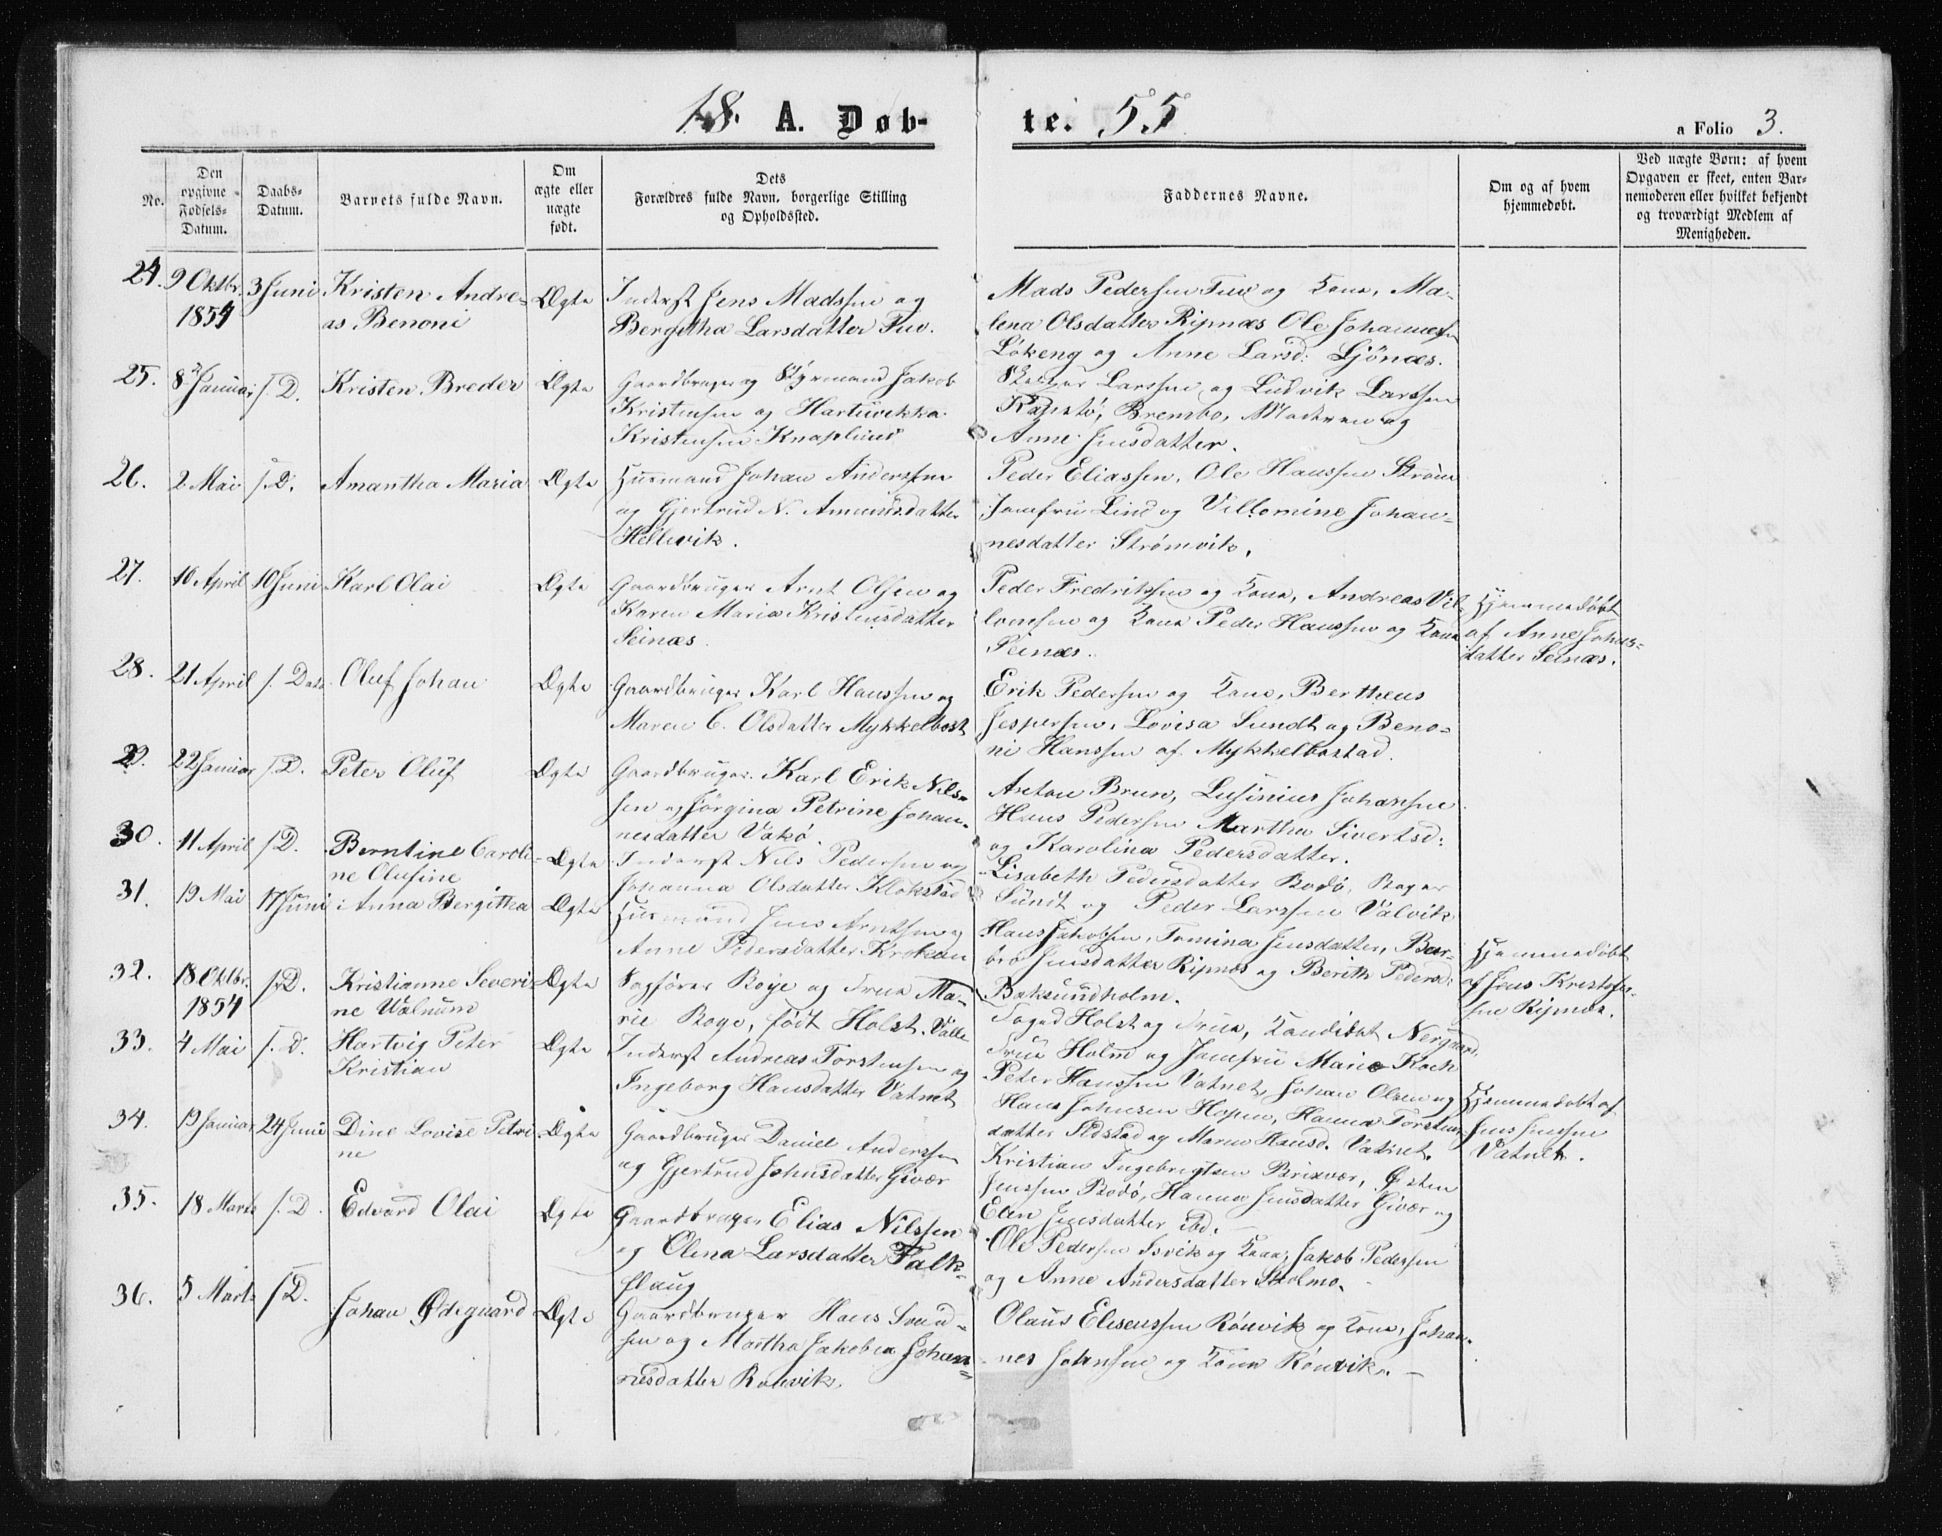 18 A. Døb- te. 55. a Folio 3.
No.
Den opgivne Fødsels-Datum.
Daabs-Datum.
Barnets fulde Navn.
Om ægte eller uægte født.
Dets Forældres fulde Navn, borgerlige Stilling og Opholdssted.
Faddernes Navne.
Om og af hvem hjemmedøbt.
Ved uægte Børn: af hvem Opgaven er skeet, enten Barnemoderen eller hvilket bekjendt og troværdigt Medlem af Menigheden.
24. 9 Oktbr. 1854 3 Juni Kristen Andre-
as Benoni Ægte Inderst Jens Madssen og
Bergitha Larsdatter Tuv.
Mads Pedersen Tuv og Kone, Ma-
lena Olsdatter Ripnæs Ole Johannessen
Løkeng og Anne Larsd: Gjönæs.
25. 8 Januar s. D. Kristen Breder Ægte Gaardbruger og Styrmand Jakob
Kristensen og Hartvikka
Kristensen Knaplund
Larssen og Ludvik Larssen
Kapstø, Brembo, Moderen og
Anne Jensdatter.
26. 2 Mai s. D. Amantha Maria Ægte Husmand Johan Anderssen
og Gjertrud N. Amundsdatter
Hellevik.
Peder Eliassen, Ole Hanssen Strøm
Jomfru Lind og Villomine Johan-
nesdatter Strømvik.
27. 10 April 10 Juni Karl Olai Ægte Gaardbruger Arnt Olsen og
Karen Maria Kristensdatter
Seinæs.
Peder Fredriksen og Kone, Andreas Vil-
lomsen og Kone Peder Hanssen og Kone
Seinæs.
Hjemmedøbt
af Anne Johns-
datter Seinæs.
28. 21 April s. Dato Oluf Johan Ægte Gaardbruger Karl Hanssen og
Maren C. Olsdatter Mykkelbost
Erik Pedersen og Kone, Bertheus
Jespersen, Lovisa Sundt og Beno-
ni Hanssen af Mykkelbostad.
29. 22 Januar s. D. Peter Oluf Ægte Gaardbruger Karl Erik Nils-
sen og Jørgina Petrine Johan-
nesdatter Vakø.
Anton Brun, Lusinius Johansen
Hans Pedersen Martha Sivertsd:
og Karolina Pedersdatter.
30. 11 April s. D. Berntine Caroli-
ne Olufine Ægte Inderst Nils Pedersen og
Johanna Olsdatter Klokstad
Lisabeth Pedersdatter Bodø, Roger
Sundt og Peder Larssen Valvik
31. 19 Mai 17 Juni Anna Bergitha Ægte Husmand Jens Arntsen og
Anne Pedersdatter Krokan
Hans Jakobsen, Tomina Jensdatter, Bar-
bro Jensdatter Ripnæs og Berith Pedersd:
Baksundholm.
Hjemmedøbt
af Jens Kristofer-
sen Ripnæs.
32. 18 Oktbr. 1854 s. D. Kristianne Severi-
ne Walnum Ægte Sagfører Roye og Frue Ma-
rie Roye, født Holst, Valle
Foged Holst og Frue, Kandidat Nergaard,
Frue Holm og Jomfru Marie Koch
33. 4 Mai s. d. Hartvig Peter
Kristian Ægte Inderst Andreas Torstensen og
Ingeborg Hansdatter Vatnet
Peter Hanssen Vatnet, Johan Olsen og
Hans Johnsen Hopen, Hanna Torstens-
datter Ildstad og Maren Hansd. Vatnet.
Hjemmedøbt af
Jens Jenssen
Vatnet.
34. 19 Januar 24 Juni Dine Lovise Petri-
ne Ægte Gaardbruger Daniel Anderssen
og Gjertrud Johnsdatter Givær
Kristian Ingebrigtsen Brixvær, Østen
Jenssen Bodø, Hanna Jensdatter Givær og
Elen Jensdatter ibd.
35. 18 Marts s. D. Edvard Olai Ægte Gaardbruger Elias Nilssen
og Olena Larsdatter Falk-
flaug
Ole Pedersen Isvik og Kone, Jakob Pedersen
og Anne Andersdatter Skolmo.
36. 5 Marts s. D. Johan Ødeguard Ægte Gaardbruger Hans Svend-
sen og Martha Jakobia Johan-
nesdatter Rønvik.
Olaus Eliseussen Rønvik og Kone, Johan-
nes Johnsen og Kone Rønvik.